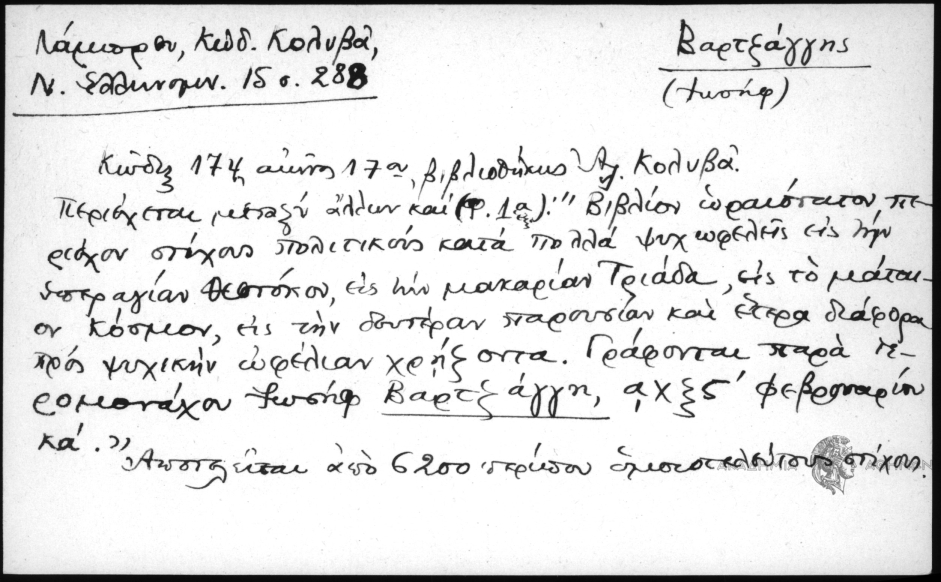 Λάμπρου, Κώδ. Κολυβᾶ,
Ν. Ἑλληνομν. 15 σ. 288
Βαρτζάγγης
(Ἰωσήφ)
Κῶδιξ 174 αἰῶνος 17ου, βιβλιοθήκης Ἀλ. Κολυβᾶ.
Περιέχεται μεταξὺ ἄλλων καὶ (φ. 1α): "Βιβλίον ὡραιότατον πε-
ριέχον στίχους πολιτικοὺς κατὰ πολλὰ ψυχωφελεῖς εἰς τὴν
ὑπεραγίαν Θεοτόκον, εἰς τὴν μακαρίαν Τριάδα, εἰς τὸ μάται-
ον κόσμον, εἰς τὴν δευτέραν παρουσίαν καὶ ἕτερα διάφορα
πρὸς ψυχικὴν ὠφέλιαν χρῄζοντα. Γράφονται παρὰ ἱε-
ρομονάχου Ἰωσὴφ Βαρτζάγγη, αχξς΄ φεβρουαρίου
κά."
Ἀποτελεῖται ἀπὸ 6200 περίπου ὁμοιοτελεύτους στίχους.
ΑΚΑΔΗΜΙΑ